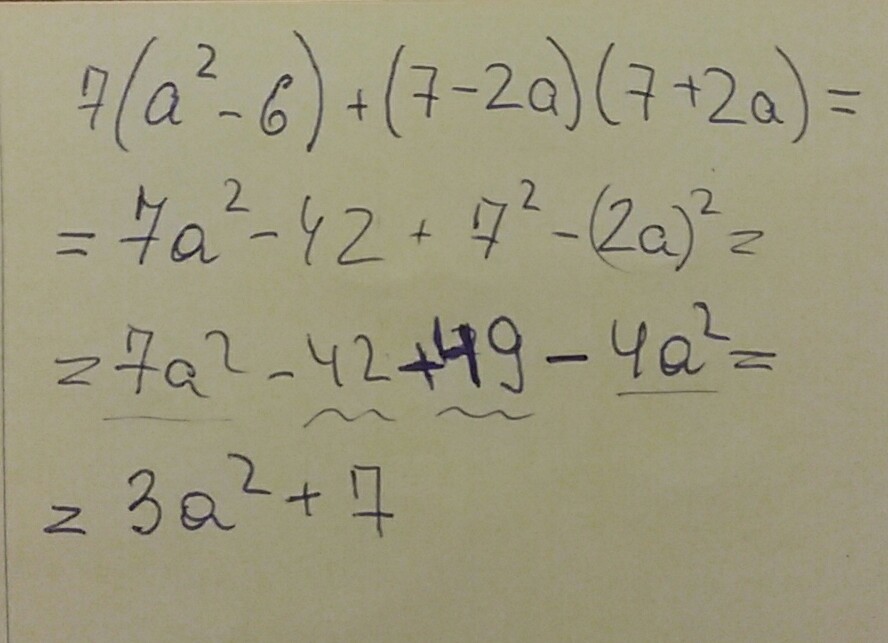 7(a² - 6) + (7 - 2a)(7 + 2a) =
= 7a² - 42 + 7² - (2a)² =
= 7a² - 42 + 49 - 4a² =
= 3a² + 7